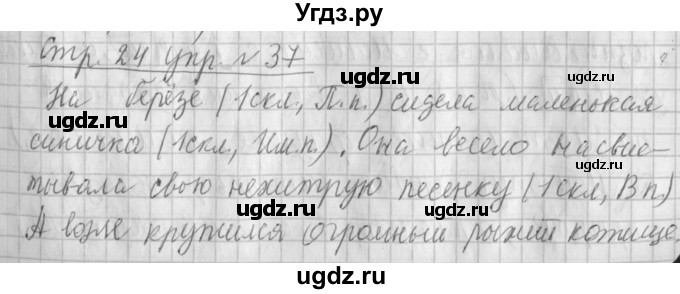 Угдз.ру
Стр. 24 упр. №37
На берёзе (1скл, П.п.) сидела маленькая
синичка (1скл, Им.п.). Она весело насвис-
тывала свою нехитрую песенку (1скл, В п)
А возле кружился огромный рыжий котище.
ugdz.ru
ugdz.ru
ugdz.ru
ugdz.ru
ugdz.ru
ugdz.ru
ugdz.ru
ugdz.ru